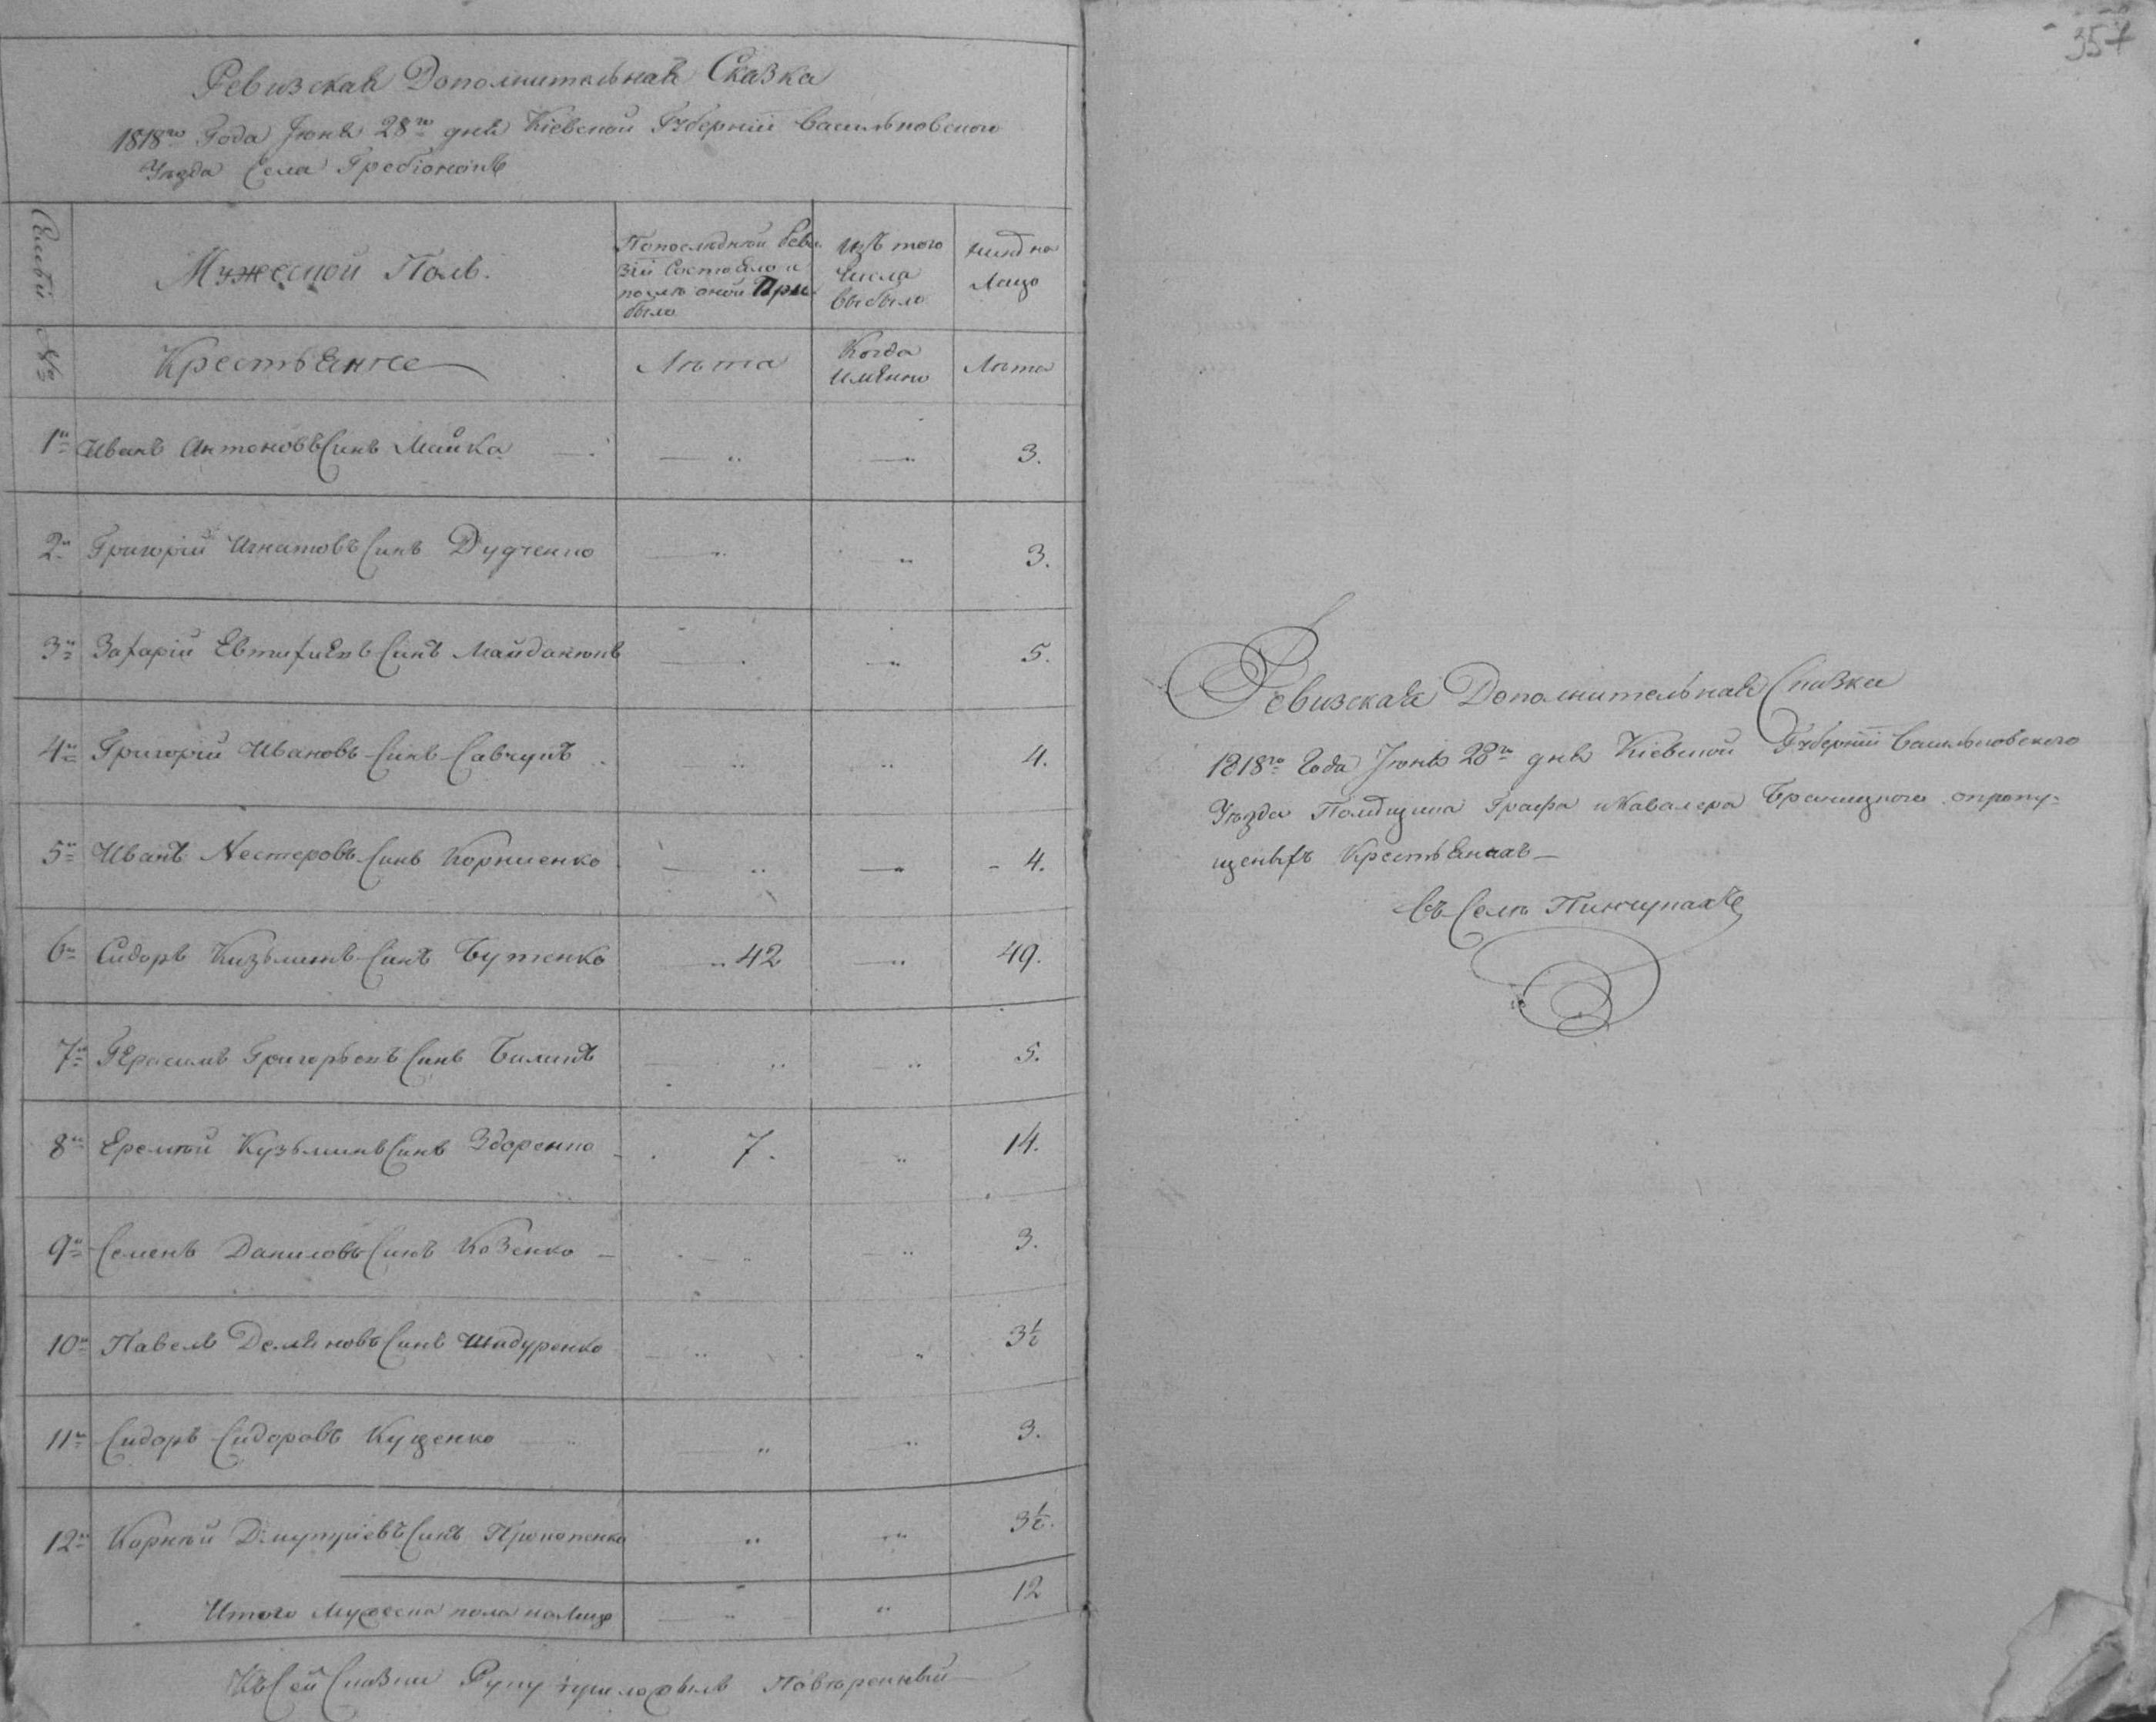 Ревизская Дополнительная Сказка
1818го Года Июня 28го дня Кіевской Губерніи Васильковскаго
Уѣзда Села Гребіонокъ
Семьи №
Мужеской Полъ.
Попослѣдней Реви-
зіи Состояло и
послѣ оной При-
было
Изъ того
Числа
выбыло
Нинѣ на
Лицо
Крестьянѣ
Лѣта
Когда
имянно
Лѣта
1й Иванъ Антоновъ Синъ Майка 3.
2й Григорій Игнатовъ Синъ Дудченко 3.
3й Захарій Евтихиевъ Синъ Майданюкъ 5.
4й Григорій Ивановъ Синъ Савчукъ 4.
5й Иванъ Нестеровъ Синъ Корниенко 4.
6й Сидоръ Кизьминъ Синъ Бутенко 42 49.
7й Герасимъ Григорьевъ Синъ Биликъ 5.
8й Еремѣй Кузьминъ Синъ Здоренко 7. 14.
9й Семенъ Даниловъ Синъ Козенко 3.
10й Павелъ Демяновъ Синъ Шадуренко 3½
11й Сидоръ Сидоровъ Кущенко 3.
12й Корнѣй Дмитріевъ Синъ Прокопенко 3½.
Итого Мужеска пола на Лицо 12
Къ Сей Сказки Руку приложылъ Повѣренный
357
Ревизская Дополнительная Сказка
1818го Года Июня 28го дня Кіевской Губерніи Васильковского
Уѣзда Помѣщика Графа и Кавалера Браницкого опропу-
щеныхъ Крестьянахъ
Съ Селѣ Пинчукахъ